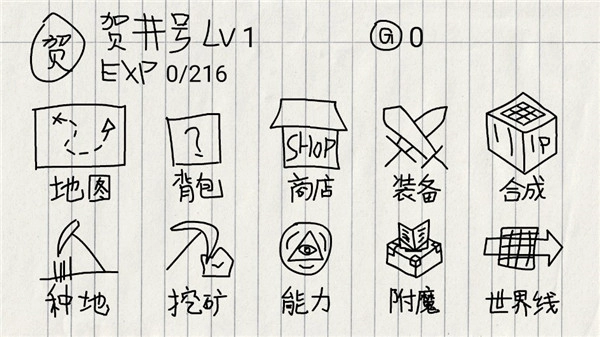 贺 贺井号 LV 1 G 0
EXP 0/216
? SHOP IP
地图 背包 商店 装备 合成
种地 挖矿 能力 附魔 世界线